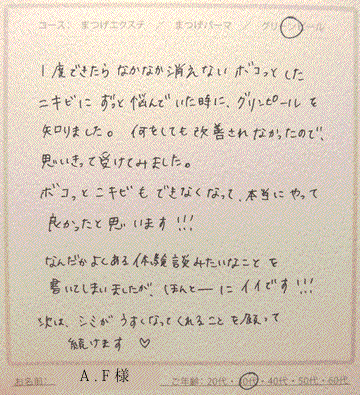 コース: まつげエクステ ／ まつげパーマ ／ グリーンピール
1度できたら なかなか消えない ボコっとした
ニキビに ずっと悩んでいた時に、グリンピールを
知りました。 何をしても改善されなかったので、
思いきって受けてみました。
ボコっとニキビも できなくなって、本当にやって
良かったと思います!!!
なんだかよくある体験談みたいなことを
書いてしまいましたが、ほんとーにイイです!!!
次は、シミがうすくなってくれることを願って
続けます ♡
お名前: A.F様 ご年齢: 20代・30代・40代・50代・60代